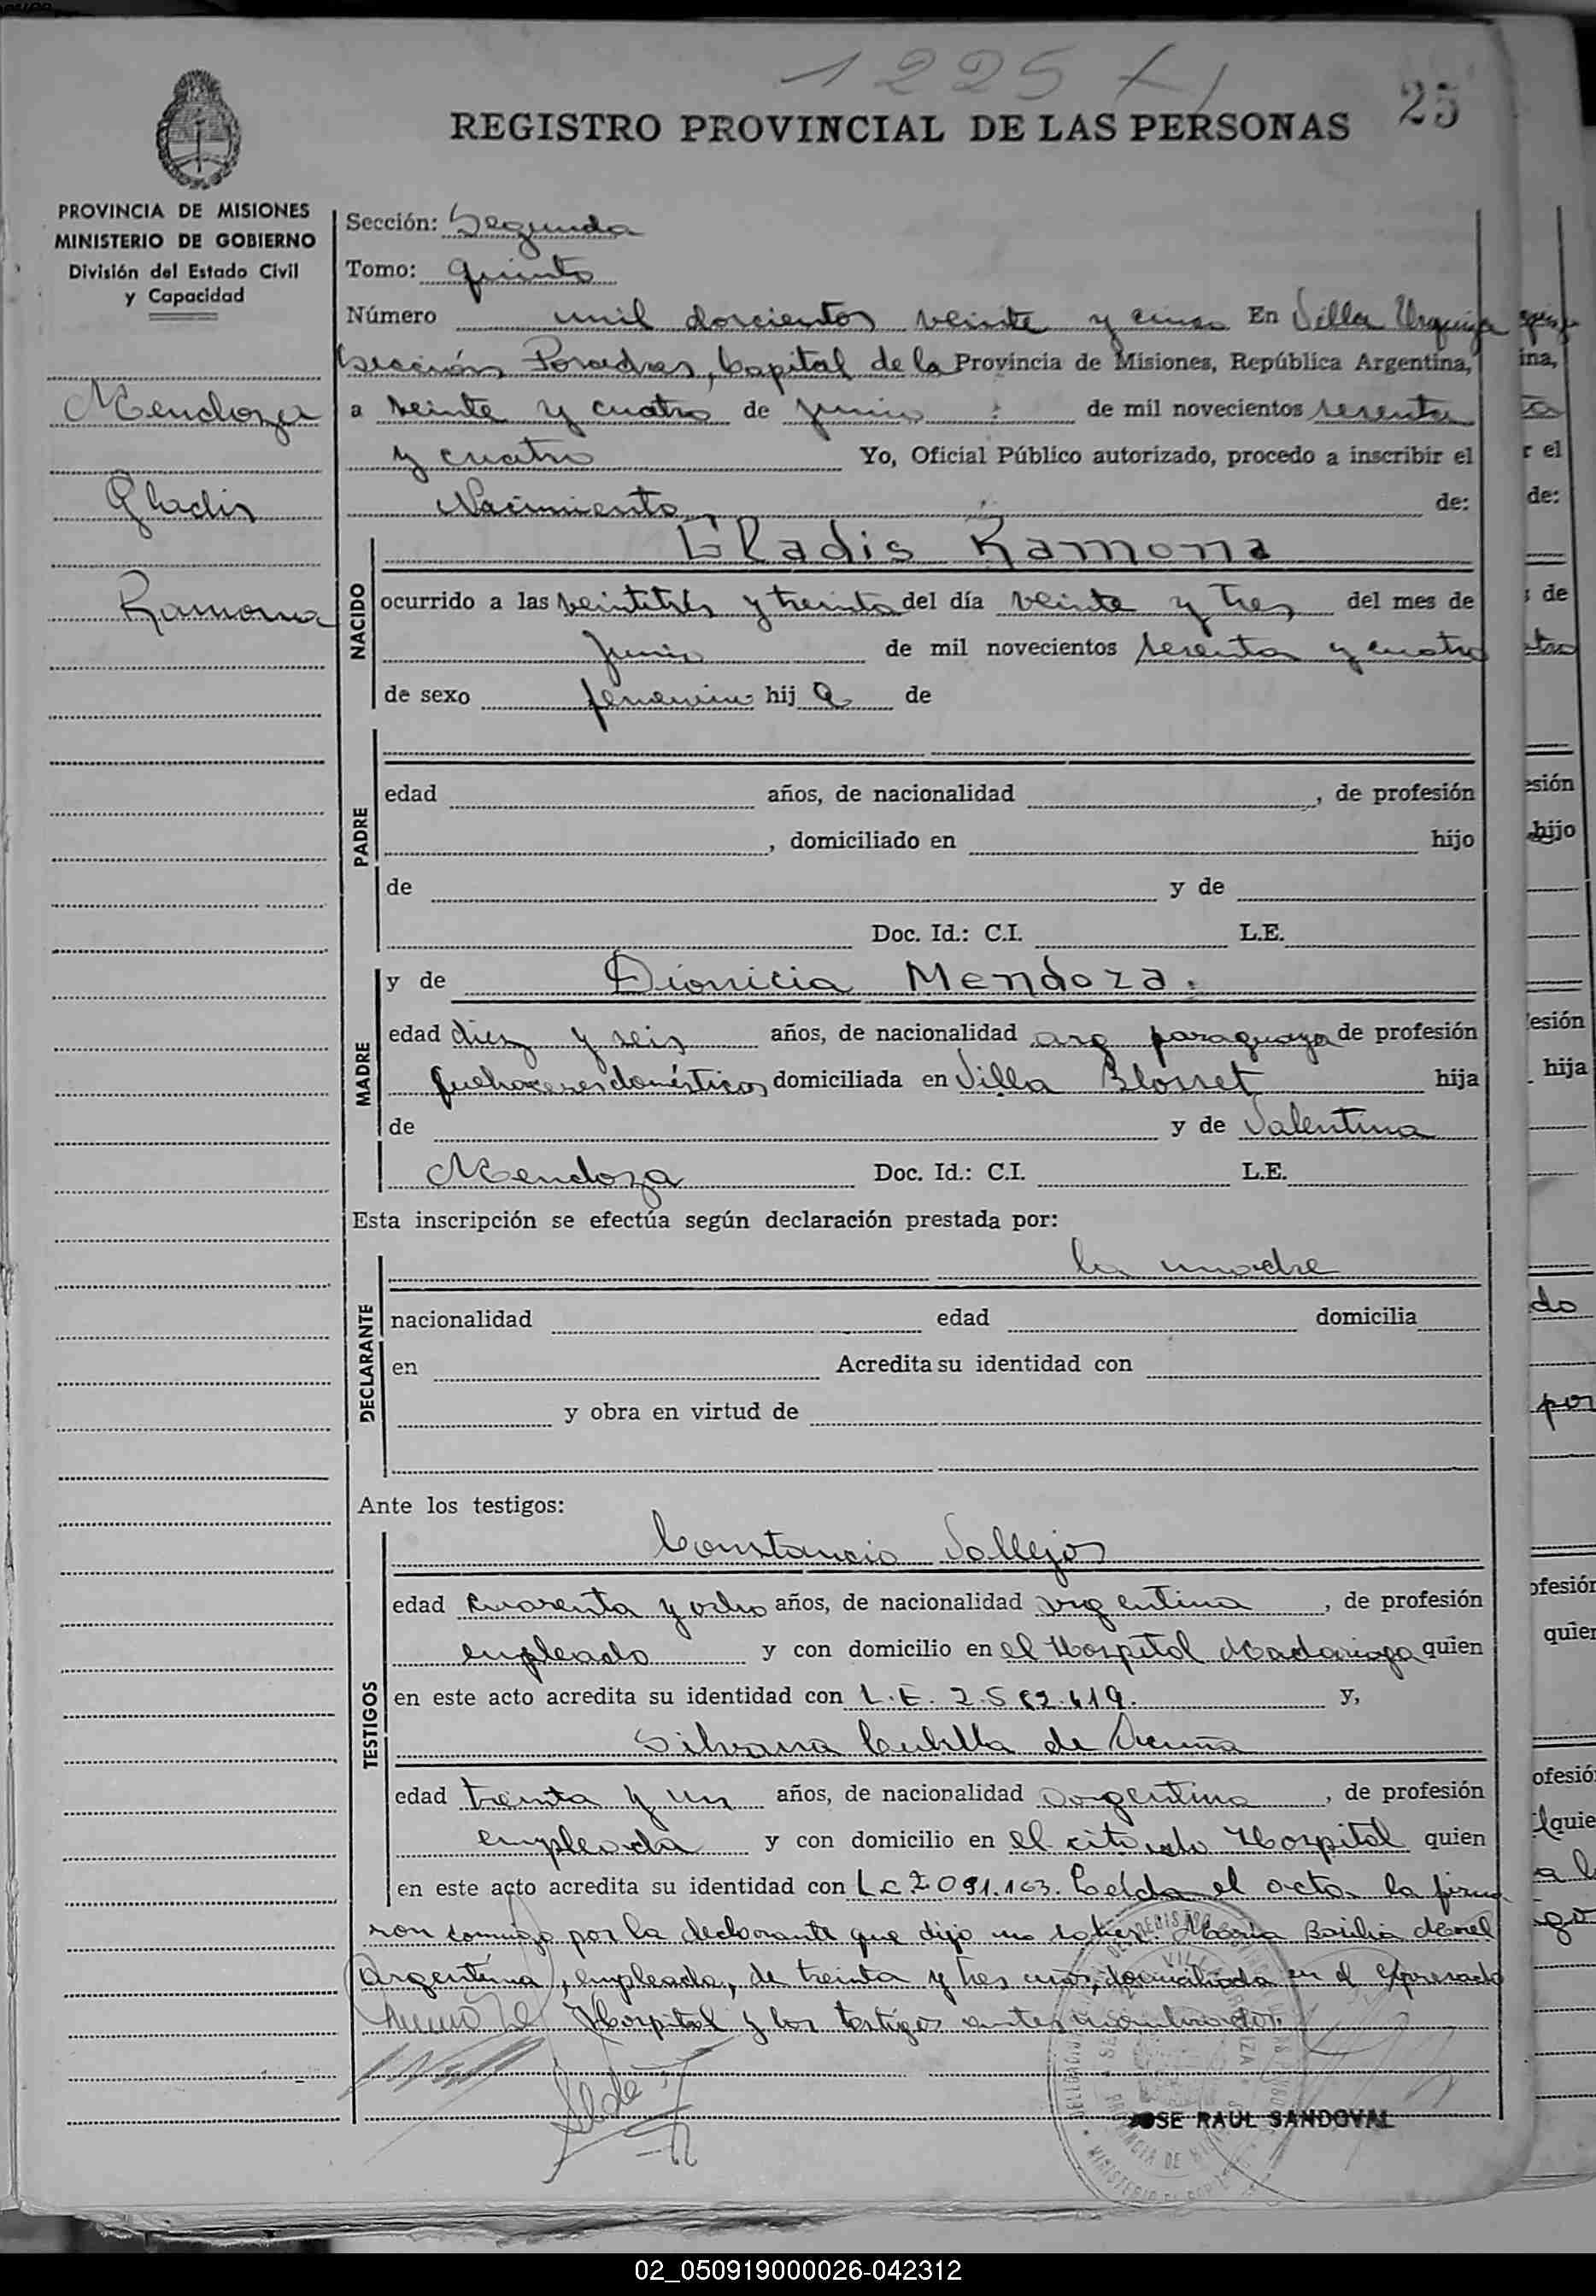 1225
25
REGISTRO PROVINCIAL DE LAS PERSONAS
PROVINCIA DE MISIONES
MINISTERIO DE GOBIERNO
División del Estado Civil
y Capacidad
Mendoza
Gladis
Ramona
Sección: Segunda
Tomo: quinto
Número mil doscientos veinte y cinco En Villa Urquiza
Sección Posadas, Capital de la Provincia de Misiones, República Argentina,
a veinte y cuatro de junio de mil novecientos sesenta
y cuatro Yo, Oficial Público autorizado, procedo a inscribir el
Nacimiento de:
NACIDO
Gladis Ramona
ocurrido a las veintitrés y treinta del día veinte y tres del mes de
junio de mil novecientos sesenta y cuatro
de sexo femenino hij a de
PADRE
edad años, de nacionalidad , de profesión
, domiciliado en hijo
de y de
Doc. Id.: C.I. L.E.
MADRE
y de Dionicia Mendoza.
edad diez y seis años, de nacionalidad arg paraguaya de profesión
quehaceres domésticos domiciliada en Villa Blosset hija
de y de Valentina
Mendoza Doc. Id.: C.I. L.E.
Esta inscripción se efectúa según declaración prestada por:
DECLARANTE
la madre
nacionalidad edad domicilia
en Acredita su identidad con
y obra en virtud de
Ante los testigos:
TESTIGOS
Constancio Vallejos
edad cuarenta y ocho años, de nacionalidad argentina , de profesión
empleado y con domicilio en el Hospital Madariaga quien
en este acto acredita su identidad con L.E. 2.562.419. y,
Silvana Cubilla de Acuña
edad treinta y un años, de nacionalidad argentina , de profesión
empleada y con domicilio en el citado Hospital quien
en este acto acredita su identidad con L.C. 2.091.163. Leída el acta la firma
ron conmigo por la declarante que dijo no saber María Basilia Morel
Argentina, empleada, de treinta y tres años, domiciliada en el expresado
Hospital y los testigos antes nombrados.
JOSE RAUL SANDOVAL
02_050919000026-042312